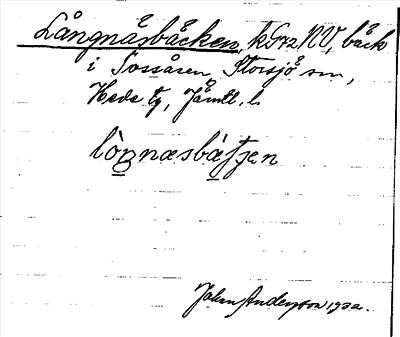 Långnäsbäcken, k G72 NV, bäck
i Tossåsen, Storsjö sn,
Hede tg, Jämtl. l.
lòŋnæsbàʃʃen
Johan Anderson 1932.